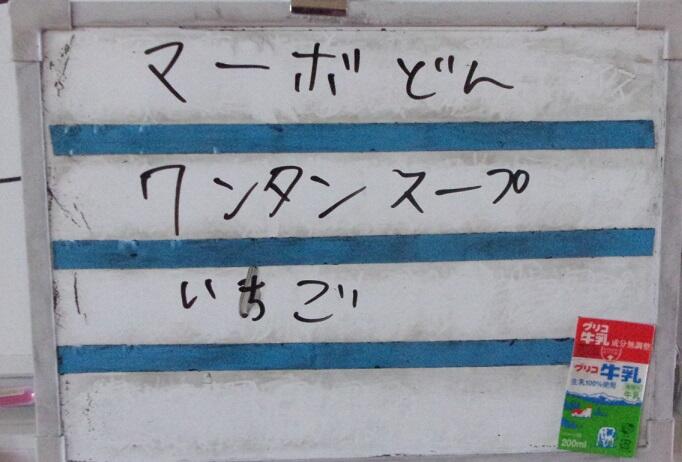 マーボどん
ワンタンスープ
いちご
グリコ
牛乳 成分無調整
グリコ 牛乳
生乳100%使用
牛乳
200ml